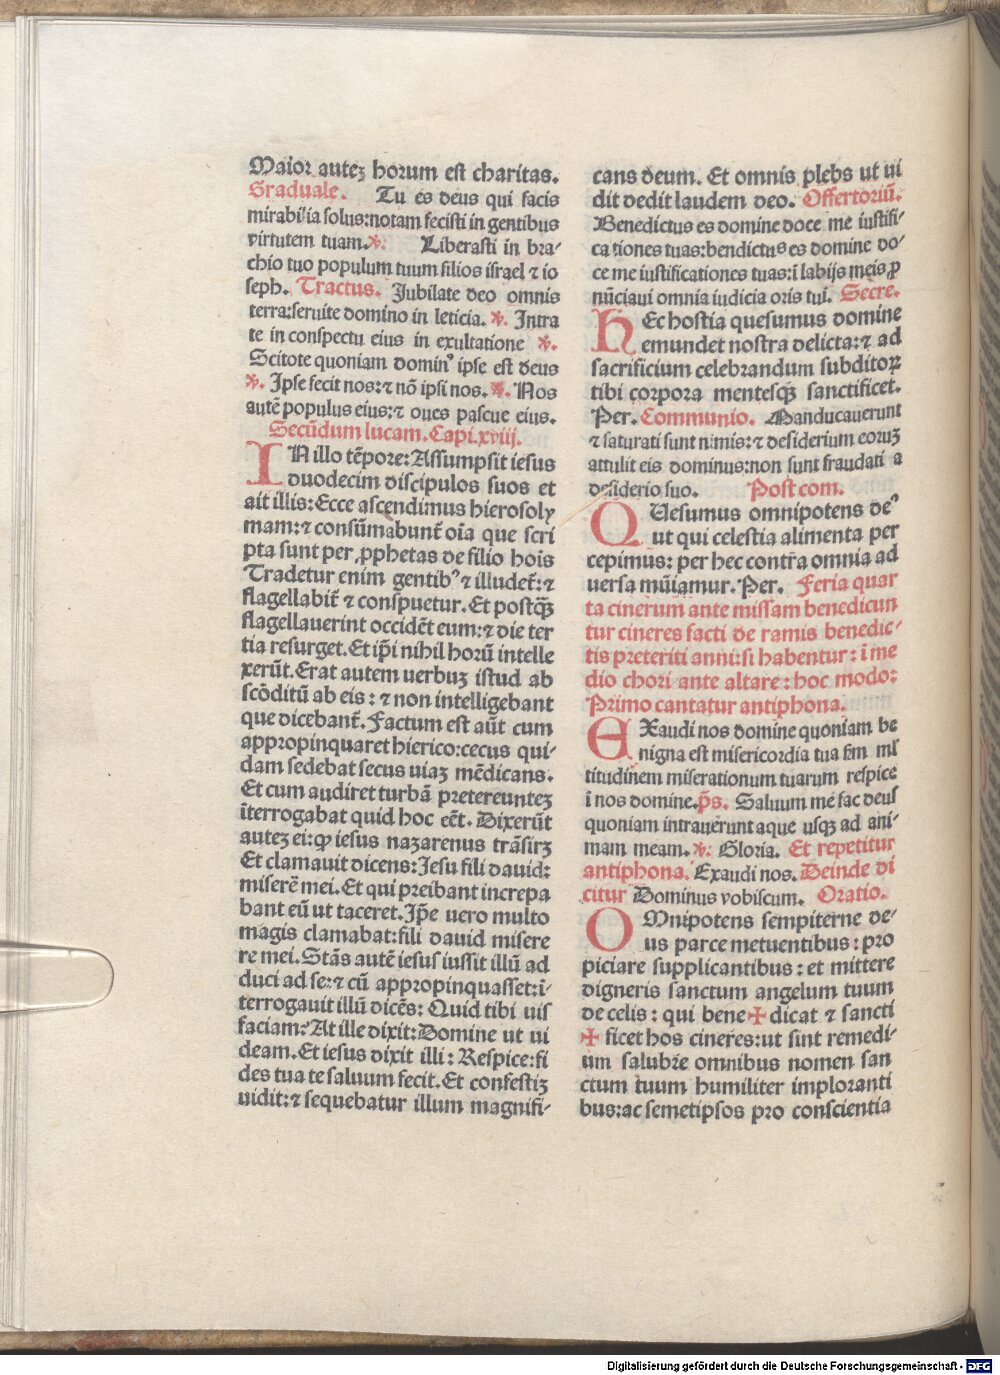 Maior autez horum est charitas.
Graduale. Tu es deus qui facis
mirabilia solus:notam fecisti in gentibus
virtutem tuam.℣. Liberasti in bra-
chio tuo populum tuum filios israel ⁊ io
seph. Tractus. Jubilate deo omnis
terra:seruite domino in leticia. ℣. Intra
te in conspectu eius in exultatione ℣.
Scitote quoniam dominꝰ ipse est deus
℣. Ipse fecit nos:⁊ nō ipsi nos. ℣. Nos
autē populus eius:⁊ oues pascue eius.
Secūdum lucam. Capi.xviij.
IN illo tēpore:Assumpsit iesus
duodecim discipulos suos et
ait illis:Ecce ascendimus hierosoly
mam:⁊ consūmabunt̄ oīa que scri
pta sunt per ꝓphetas de filio hoīs
Tradetur enim gentibꝰ ⁊ illudet̄:⁊
flagellabit̄ ⁊ conspuetur. Et postqȝ
flagellauerint occidēt eum:⁊ die ter
tia resurget. Et ip̄i nihil horū intelle
xerūt. Erat autem uerbuȝ istud ab
scōditū ab eis: ⁊ non intelligebant
que dicebant̄. Factum est aūt cum
appropinquaret hierico:cecus qui-
dam sedebat secus uiaȝ mēdicans.
Et cum audiret turbā pretereunteȝ
īterrogabat quid hoc eēt. Dixerūt
auteȝ ei:ꝙ iesus naȝarenus trāsirȝ
Et clamauit dicens:Jesu fili dauid:
miserē mei. Et qui preibant increpa
bant eū ut taceret. Ip̄e uero multo
magis clamabat:fili dauid misere
re mei. Stās autē iesus iussit illū ad
duci ad se:⁊ cū appropinquasset:ī-
terrogauit illū dicēs: Quid tibi uis
faciam? At ille dixit:Domine ut ui
deam. Et iesus dixit illi: Respice:fi
des tua te saluum fecit. Et confestiȝ
uidit:⁊ sequebatur illum magnifi-
cans deum. Et omnis plebs ut ui
dit dedit laudem deo. Offertoriū.
Benedictus es domine doce me iustifi-
cationes tuas:bendictus es domine do-
ce me iustificationes tuas:ī labijs meis ꝓ
nūciaui omnia iudicia oris tui. Secre.
HEc hostia quesumus domine
emundet nostra delicta:⁊ ad
sacrificium celebrandum subditoꝝ
tibi corpora mentesqȝ sanctificet.
Per. Communio. Manducauerunt
⁊ saturati sunt nimis:⁊ desiderium eoruȝ
attulit eis dominus:non sunt fraudati a
desiderio suo. Post com.
QUesumus omnipotens deꝰ
ut qui celestia alimenta per
cepimus: per hec contr̄a omnia ad
uersa mūiamur. Per. Feria quar
ta cinerum ante missam benedicun
tur cineres facti de ramis benedic-
tis preteriti anni:si habentur: ī me
dio chori ante altare: hoc modo:
Primo cantatur antiphona.
EXaudi nos domine quoniam be
nigna est misericordia tua s̄m ml̄
titudinem miserationum tuarum respice
ī nos domine. p̄s. Saluum me fac deus
quoniam intrauerunt aque usqȝ ad ani-
mam meam. ℣. Gloria. Et repetitur
antiphona. Exaudi nos. Deinde di
citur Dominus vobiscum. Oratio.
OMnipotens sempiterne de-
us parce metuentibus: pro
piciare supplicantibus: et mittere
digneris sanctum angelum tuum
de celis: qui bene✠dicat ⁊ sancti
✠ ficet hos cineres:ut sint remedi-
um salubr̄e omnibus nomen san
ctum tuum humiliter imploranti
bus:ac semetipsos pro conscientia
Digitalisierung gefördert durch die Deutsche Forschungsgemeinschaft - DFG